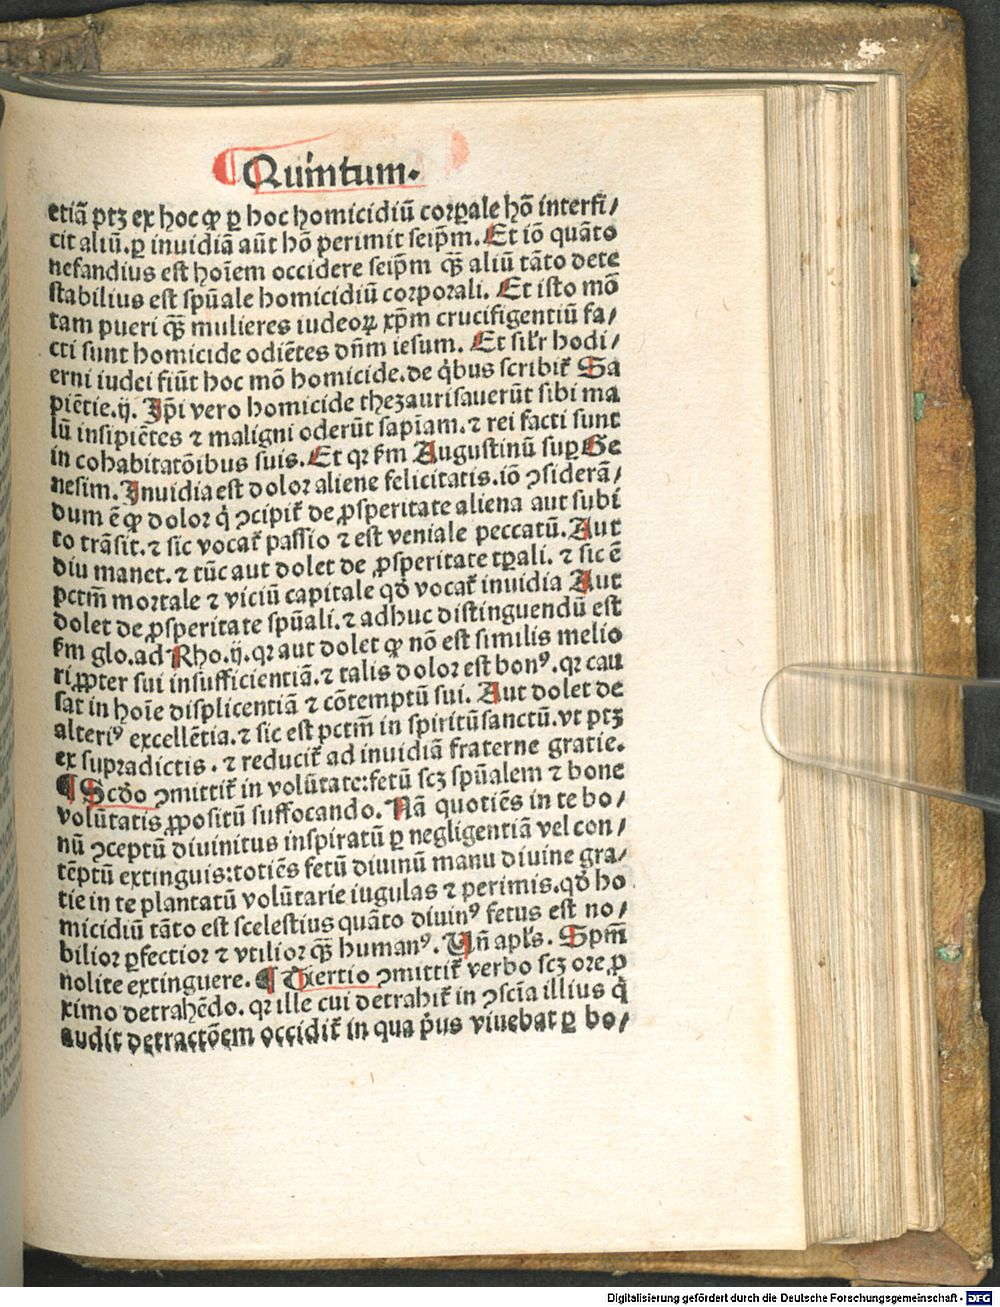 Quintum.
etiã ptꝫ ex hoc ꝙ ꝑ hoc homicidiũ corꝑale hõ interfi/
cit aliũ.ꝑ inuidiã aũt hõ perimit seip̄m. Et iõ quãto
nefandius est hoĩem occidere seip̄m qꝫ̃ aliũ tãto dete
stabilius est spũale homicidiũ corporali. Et isto mõ
tam pueri qꝫ̃ mulieres iudeoꝝ xp̄m crucifigentiũ fa/
cti sunt homicide odiẽtes dñm iesum. Et sil'r hodi/
erni iudei fiũt hoc mõ homicide.de q̇bus scribit᷑ Sa
piẽtie.ij. Ip̄i vero homicide thezaurisauerũt sibi ma
lũ insipiẽtes ⁊ maligni oderũt sapiam.⁊ rei facti sunt
in cohabitatõibus suis. Et qꝛ ẜm Augustinũ suꝑ Ge
nesim. Inuidia est dolor aliene felicitatis.iõ ꝯsiderã/
dum ẽ ꝙ dolor q̇ ꝯcipit᷑ de ꝓsperitate aliena aut subi
to trãsit.⁊ sic vocat᷑ passio ⁊ est veniale peccatũ. Aut
diu manet.⁊ tũc aut dolet de ꝓsperitate tꝑali. ⁊ sic ẽ
pctm̃ mortale ⁊ viciũ capitale qd̾ vocat᷑ inuidia Aut
dolet de ꝓsperitate spũali.⁊ adhuc distinguendũ est
ẜm glo.ad Rho.ij.qꝛ aut dolet ꝙ nõ est similis melio
ri ꝓpter sui insufficientiã.⁊ talis dolor est bonꝰ.qꝛ cau
sat in hoĩe displicentiã ⁊ cõtemptũ sui. Aut dolet de
alteriꝰ excellẽtia.⁊ sic est pctm̃ in spiritũsanctũ.vt ptꝫ
ex supradictis. ⁊ reducit᷑ ad inuidiã fraterne gratie.
¶ Scd̾o ꝯmittit᷑ in volũtate:fetũ scꝫ spũalem ⁊ bone
volũtatis ꝓpositũ suffocando. Nã quotiẽs in te bo/
nũ ꝯceptũ diuinitus inspiratũ ꝑ negligentiã vel con/
tẽptũ extinguis:totiẽs fetũ diuinũ manu diuine gra/
tie in te plantatũ volũtarie iugulas ⁊ perimis.qd̾ ho
micidiũ tãto est scelestius quãto diuinꝰ fetus est no/
bilior ꝑfectior ⁊ vtilior qꝫ̃ humanꝰ. Vñ apl's. Spm̃
nolite extinguere. ¶ Tertio ꝯmittit᷑ verbo scꝫ ore,ꝓ
ximo detrahẽdo. qꝛ ille cui detrahit᷑ in ꝯscĩa illius q̇
audit detractõem occidit᷑ in qua pͥus viuebat ꝑ bo/
Digitalisierung gefördert durch die Deutsche Forschungsgemeinschaft - DFG